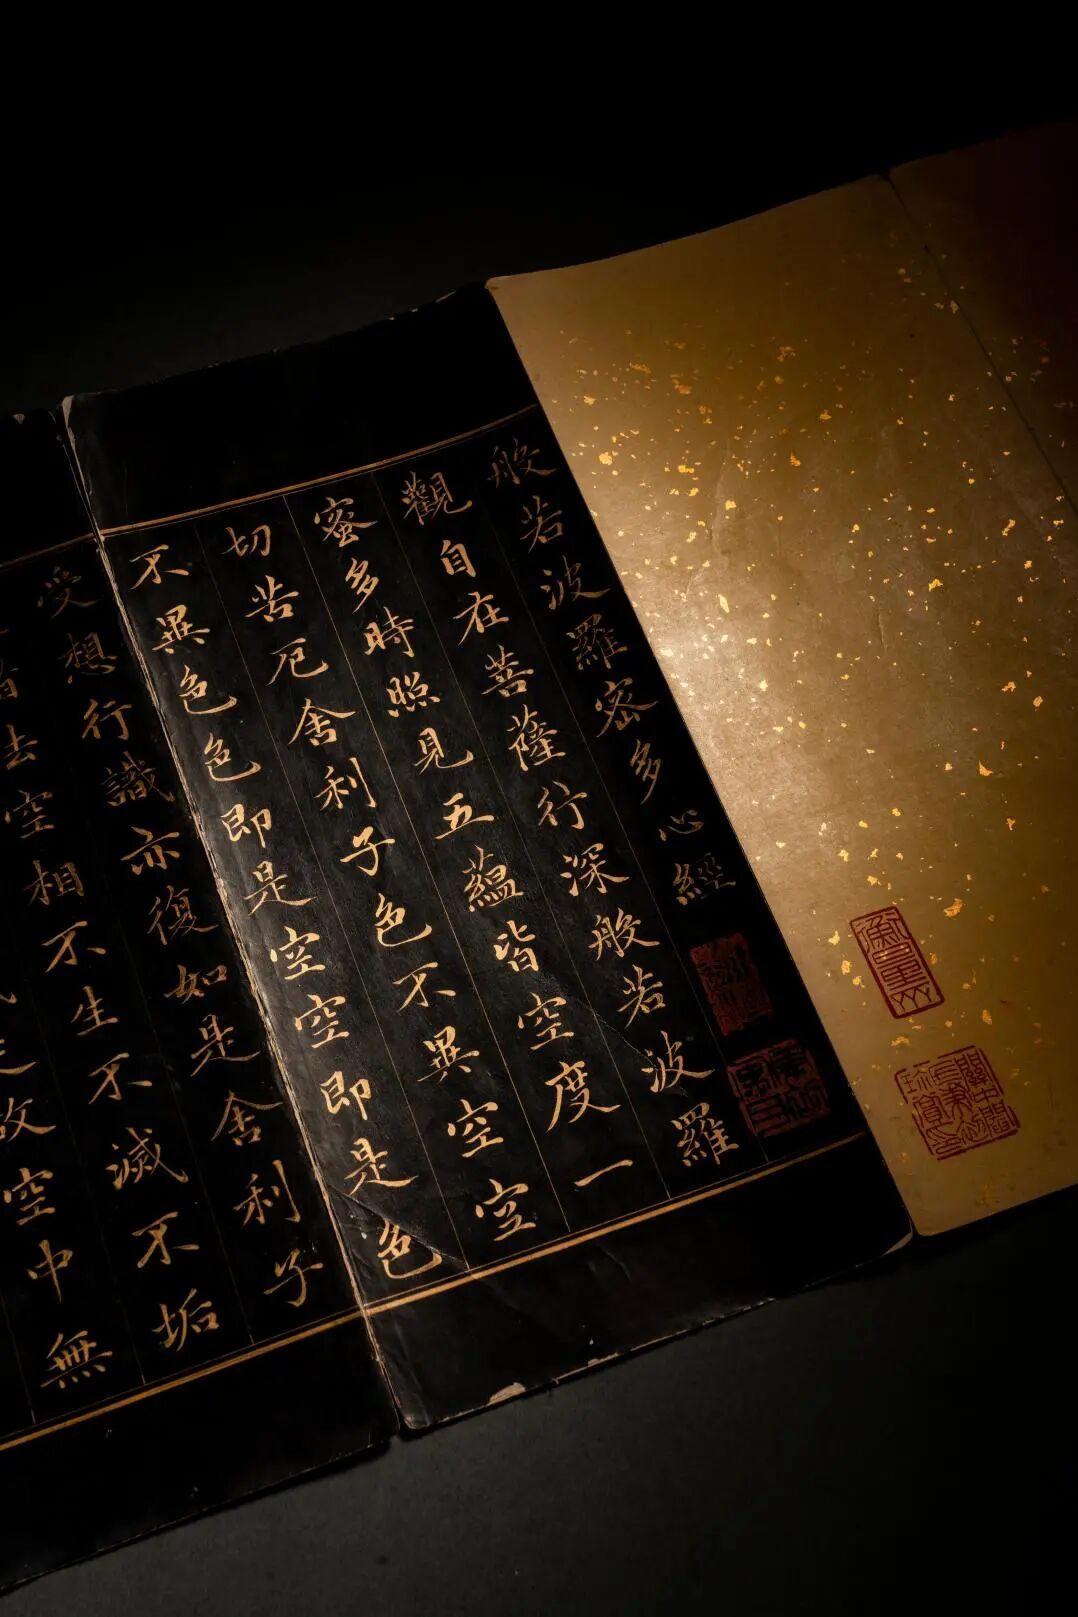 般若波羅密多心經
觀自在菩薩行深般若波羅
蜜多時照見五蘊皆空度一
切苦厄舍利子色不異空空
不異色色即是空空即是色
受想行識亦復如是舍利子
空相不生不滅不垢
故空中無